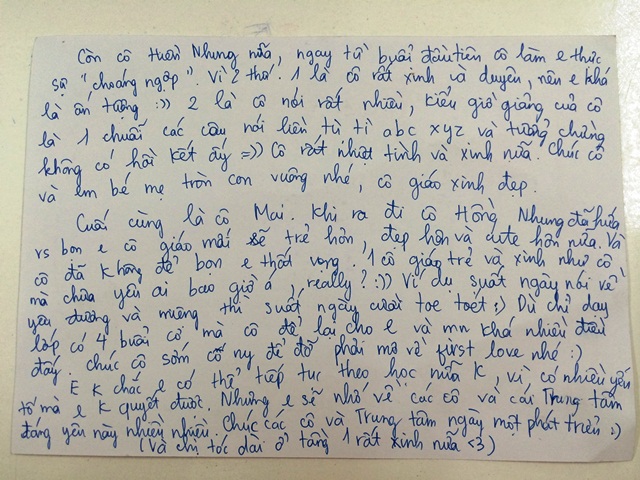 Còn cô Huyền Nhung nữa, ngay từ buổi đầu tiên, cô làm e thực
sự "choáng ngợp". Vì 2 thứ. 1 là cô rất xinh và duyên, nên e khá
là ấn tượng :)) 2 là cô nói rất nhiều, kiểu giờ giảng của cô
là 1 chuỗi các câu nói liên tù tì abc xyz và tưởng chừng
không có hồi kết ấy =)) Cô rất nhiệt tình và xinh nữa. Chúc cô
và em bé mẹ tròn con vuông nhé, cô giáo xinh đẹp.
Cuối cùng là cô Mai. Khi ra đi cô Hồng Nhung đã hứa
vs bọn e cô giáo mới sẽ trẻ hơn, đẹp hơn và cute hơn nữa. Và
cô đã không để bọn e thất vọng. 1 cô giáo trẻ và xinh như cô
mà chưa yêu ai bao giờ á, really? :)) Ví dụ suốt ngày nói về
yêu đương và miệng thì suốt ngày cười toe toét :) Dù chỉ dạy
lớp có 4 buổi cơ mà cô để lại cho e và mn khá nhiều điều
đấy. Chúc cô sớm có ny để đỡ phải mơ về first love nhé :)
E k chắc e có thể tiếp tục theo học nữa k, vì có nhiều yếu
tố mà e k quyết được. Nhưng e sẽ nhớ về các cô và cái Trung tâm
đáng yêu này nhiều nhiều. Chúc các cô và Trung tâm ngày một phát triển :)
(Và chị tóc dài ở tầng 1 rất xinh nữa <3)